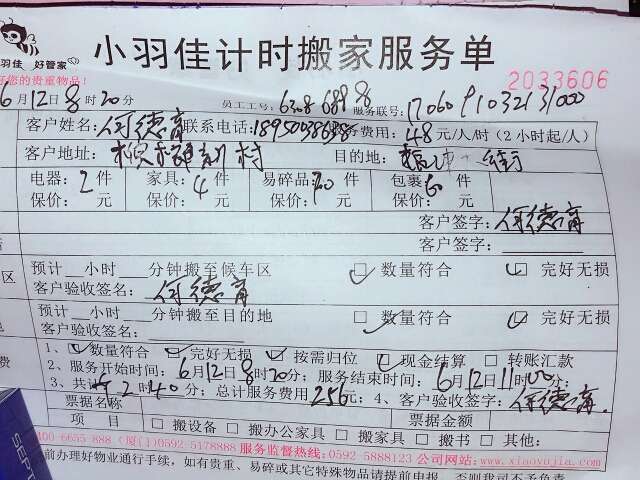 小羽佳计时搬家服务单
羽佳 好管家
您的贵重物品!
2033606
6月12日8时20分 员工工号: 6308 6898 服务联号:
客户姓名: 何德育 联系电话: 服务费用: 48元/人/时 (2小时起/人)
客户地址: 村 目的地:
电器: 2件 家具: 4件 易碎品: 件 包裹: 件
保价: 元 保价: 元 保价: 元 保价: 元
客户签字: 何德育
客户签字:
预计 小时 分钟搬至候车区 数量符合 完好无损
客户验收签名: 何德育
预计 小时 分钟搬至目的地 数量符合 完好无损
客户验收签名:
1、 数量符合 完好无损 按需归位 现金结算 转账汇款
2、服务开始时间: 6月12日8时20分; 服务结束时间: 6月12日11时00分;
3、共计 2时40分; 总计服务费用256元; 4、客户验收签字: 何德育
票据名称 票据金额
项 目 搬设备 搬办公家具 搬家具 搬书 其他:
400-6655 888 (厦门)0592-5178888 服务监督热线:0592-5888123 公司网站:www.xiaoyujia.com
前办理好物业通行手续, 如有贵重、易碎或其它特殊物品请提前申报, 否则我司不予负责
SEPT